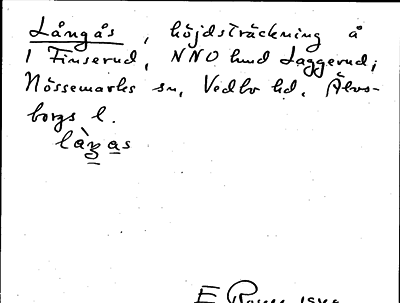 Långås, höjdsträckning å
1 Finserud, NNO lund Laggerud;
Nössemarks sn, Vedbo hd, Älvs-
borgs l.
làŋas
E